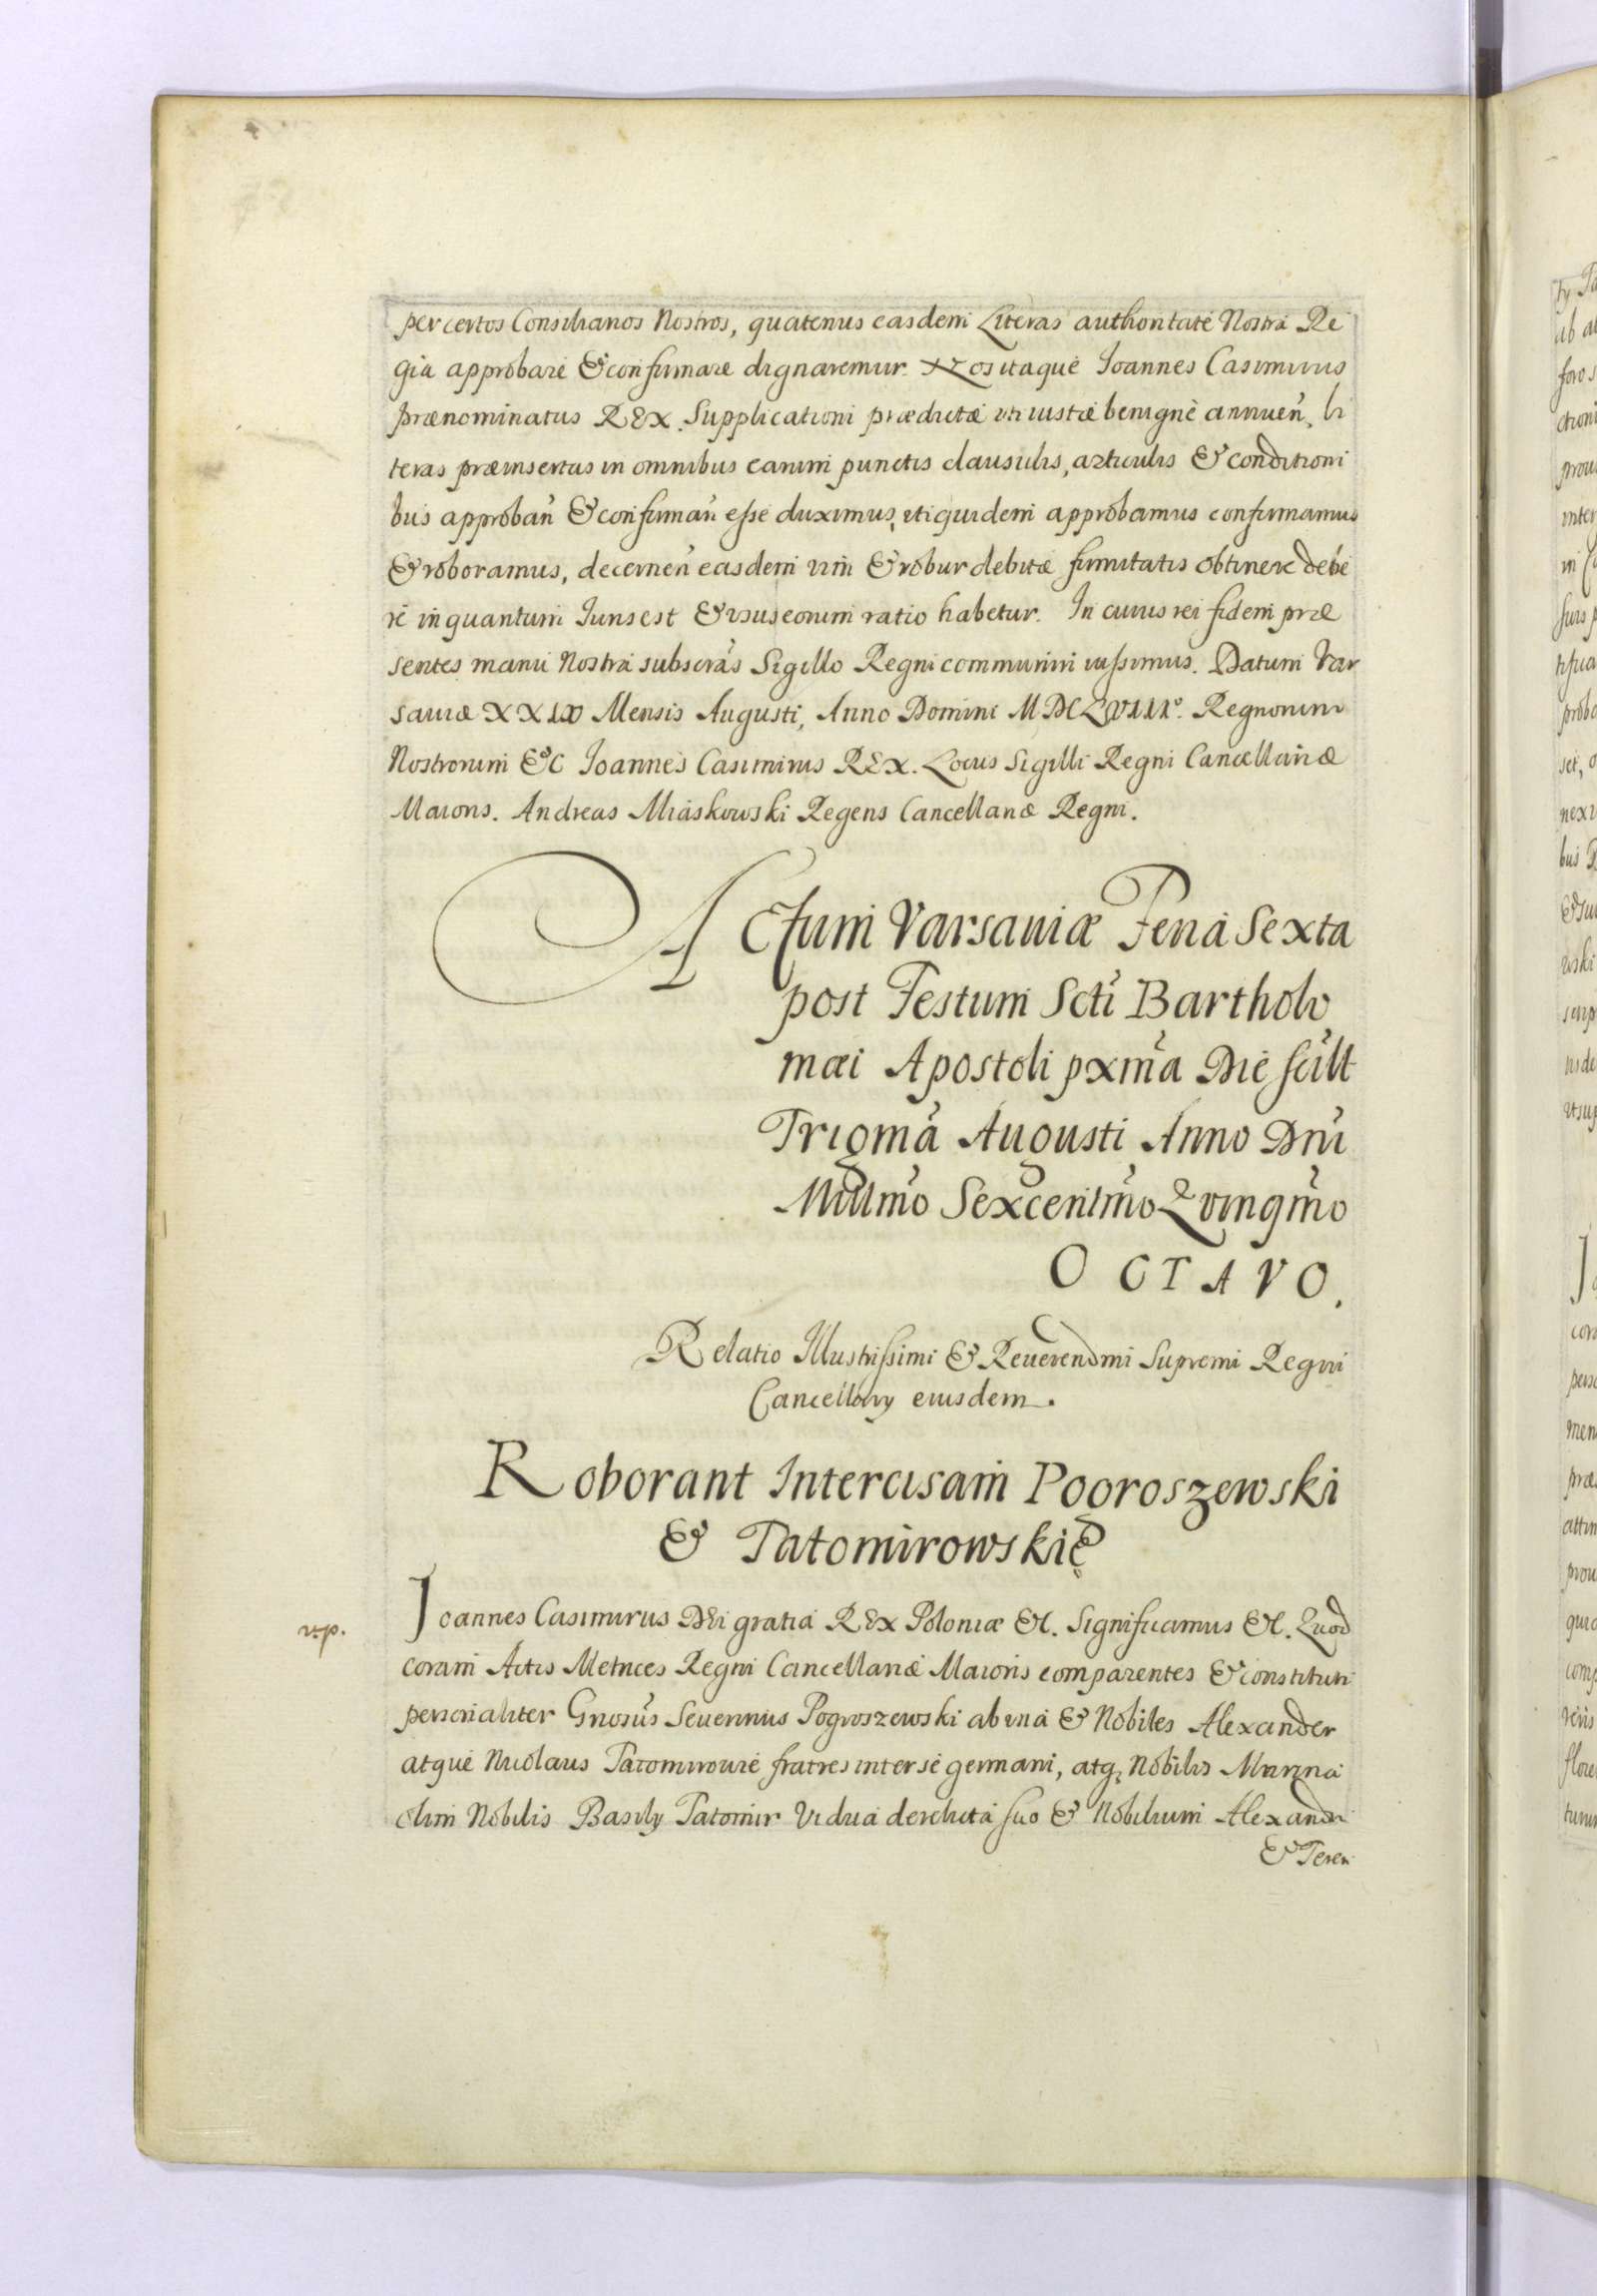 per certos Consiliarios Nostros, quatenus easdem Literas authoritate Nostra Re
gia approbare & confirmare dignaremur. Nos itaque Ioannes Casimirus
prænominatus REX. Supplicationi prædictæ uti iustæ benignè annuen̄, li
teras præinsertas in omnibus earum punctis clausulis, articulis & conditioni
bus approban̄ & confirman̄ esse duximus, uti quidem approbamus confirmamus
& roboramus, decernen̄ easdem vim & robur debitæ firmitatis obtinere debe
re in quantum Iuris est & usus eorum ratio habetur. In cuius rei fidem præ
sentes manu Nostra subscras Sigillo Regni communiri iussimus. Datum Var
saviæ XXIX Mensis Augusti, Anno Domini MDCLVIIIº. Regnorum
Nostrorum &c Ioannes Casimirus REX. Locus Sigilli Regni Cancellariæ
Maioris. Andreas Miaskowski Regens Cancellariæ Regni.
Actum Varsaviæ Feria Sexta
post Festum Scti Bartholo
mæi Apostoli pxma Die scilt
Trigma Augusti Anno Dni
Millmo Sexcentmo Quinqmo
OCTAVO.
Relatio Illustrissimi & Reverendmi Supremi Regni
Cancellarij eiusdem.
Roborant Intercisam Pogroszewski
& Tatomirowskie
v.p.
Ioannes Casimirus DEI gratia REX Poloniæ &c. Significamus &c. Quod
coram Actis Metrices Regni Cancellariæ Maioris comparentes & constituti
personaliter Gnosus Severinus Pogroszewski ab una & Nobiles Alexander
atque Nicolaus Tatomirowie fratres inter se germani, atq; Nobilis Marina
olim Nobilis Basilij Tatomir Vidua derelicta suo & Nobilium Alexandri
& Teren